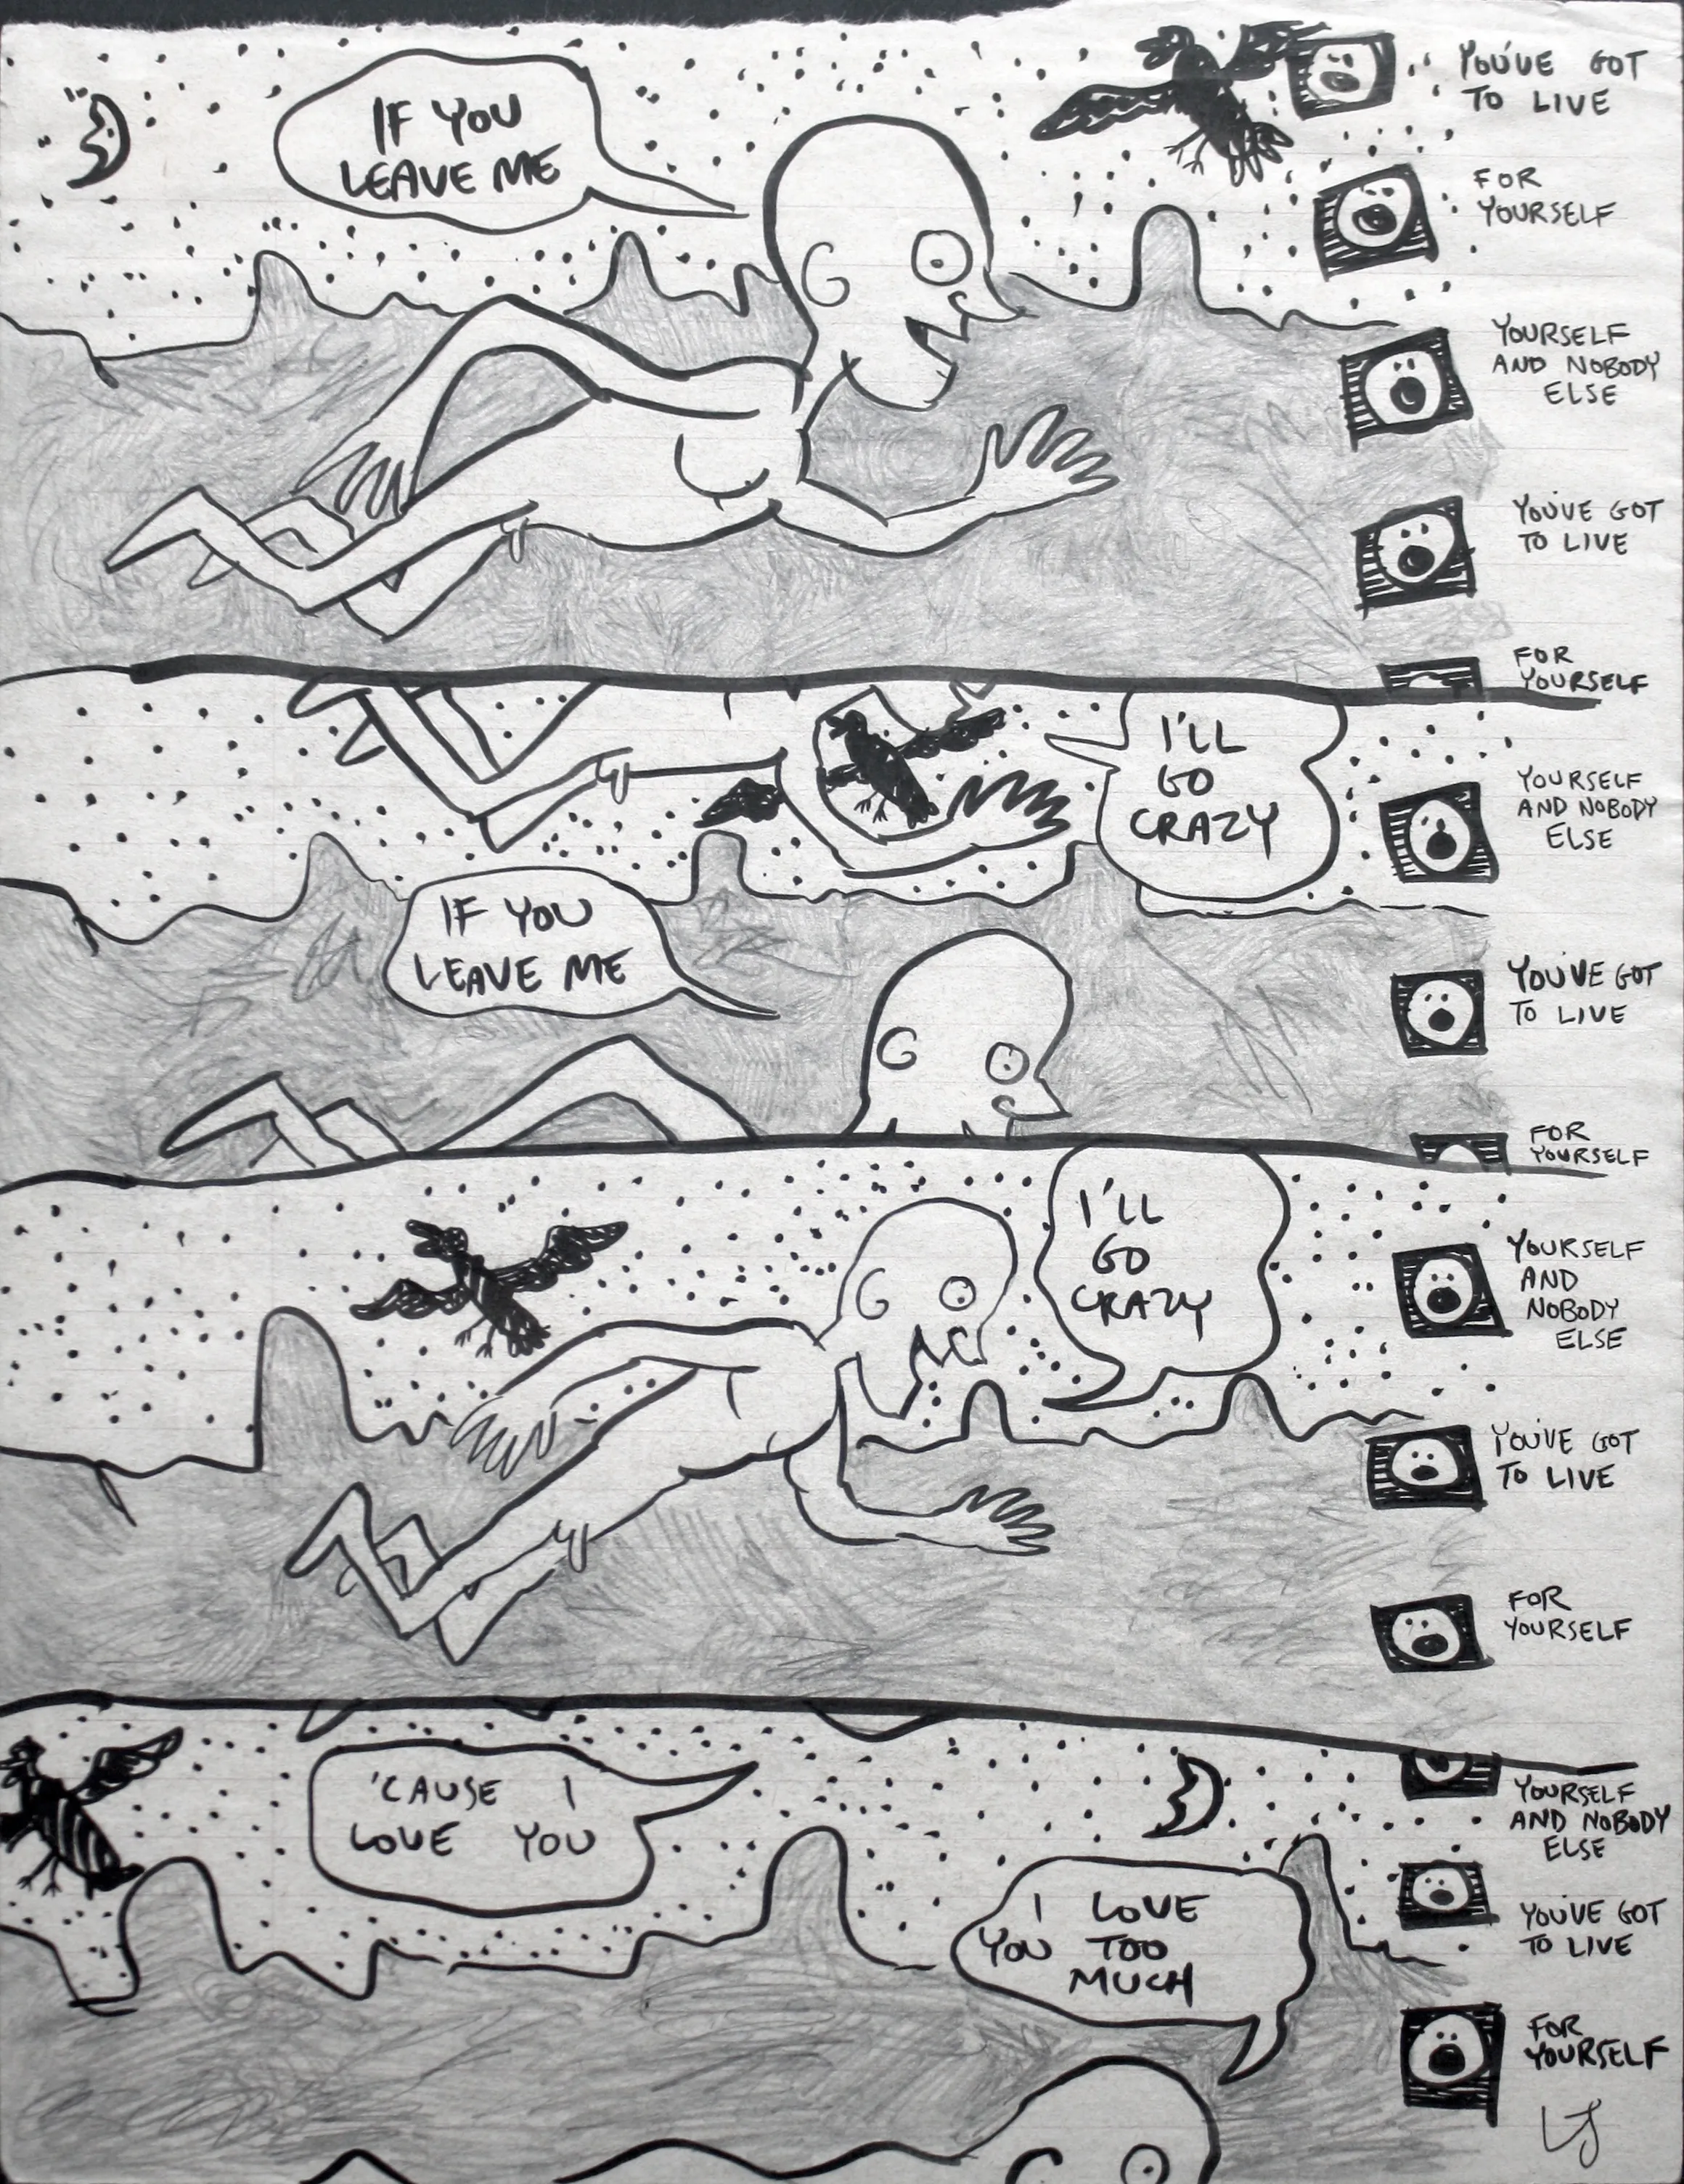 IF YOU
LEAVE ME
YOU'VE GOT
TO LIVE
FOR
YOURSELF
YOURSELF
AND NOBODY
ELSE
YOU'VE GOT
TO LIVE
FOR
YOURSELF
I'LL
GO
CRAZY
YOURSELF
AND NOBODY
ELSE
IF YOU
LEAVE ME
YOU'VE GOT
TO LIVE
FOR
YOURSELF
I'LL
GO
CRAZY
YOURSELF
AND
NOBODY
ELSE
YOU'VE GOT
TO LIVE
FOR
YOURSELF
'CAUSE I
LOVE YOU
YOURSELF
AND NOBODY
ELSE
I LOVE
YOU TOO
MUCH
YOU'VE GOT
TO LIVE
FOR
YOURSELF
LJ